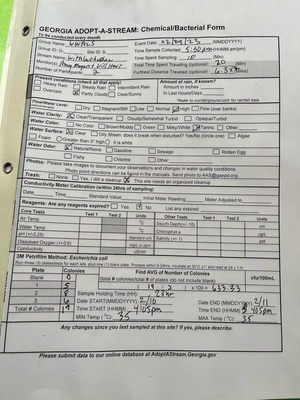 GEORGIA ADOPT-A-STREAM: Chemical/Bacterial Form
To be conducted every month
Group Name: Event Date 02/09/23 (MMDDYYYY)
Group ID: G- Site ID: S- Time Sample Collected 5:30pm (HHMM am/pm)
Stream Name: Time Spent Sampling 10 (Min)
Monitor(s): Total Time Spent Traveling (optional) 20 (Min)
Number of Participants 2 Furthest Distance Traveled (optional) (Miles)
Present conditions (check all that apply) Amount of rain, if known?
Heavy Rain Steady Rain Intermittent Rain Amount in Inches
Overcast Partly Cloudy Clear/Sunny In Last Hours/Days
*Refer to wunderground.com for rainfall data
Flow/Water Level: Dry Stagnant/Still Low Normal High Flood (over banks)
Water Clarity: Clear/Transparent Cloudy/Somewhat Turbid Opaque/Turbid
Water Color: No Color Brown/Muddy Green Milky/White Tannic Other:
Water Surface: Clear Oily Sheen: does it break when disturbed? Yes/No (circle one) Algae
Foam Greater than 3" high It is white
Water Odor: Natural/None Gasoline Sewage Rotten Egg
Fishy Chlorine Other:
Photos: Please take images to document your observations and changes in water quality conditions
Photo point directions can be found in the manuals. Send photo to AAS@gaepd.org
Trash: None Yes, I did a cleanup This site needs an organized cleanup
Conductivity Meter Calibration (within 24hrs of sampling)
Date Time Standard Value Initial Meter Reading Meter Adjusted to
Reagents: Are any reagents expired? Yes No List any expired
Core Tests Test 1 Test 2 Units Other Tests Test 1 Test 2 Units
Air Temp °C Secchi Depth (+/- 10) cm
Water Temp °C Chlorophyll a ug/L
pH (+/-0.25) Standard unit Salinity (+/- 1) ppt
Dissolved Oxygen (+/-0.6) mg/L or ppm
Conductivity uS/cm
3M Petrifilm Method: Escherichia coli
Plate Colonies Find AVG of Number of Colonies cfu/100mL
Blank 0 (total # colonies/total # of plates (do not include blank)
1 5 19 / 3 x 100 = 633.33
2 8 Sample Holding Time (HH) 23hr
3 6 Date START(MMDDYYYY) 2/10 Date END (MMDDYYYY) 2/11
Total # Colonies 19 Time START (HHMM) 4:05pm Time END (HHMM) 4:05pm
MIN Temp (°C) 35 MAX Temp (°C) 35
Any changes since you last sampled at this site? If yes, please describe.
Please submit data to our online database at AdoptAStream.Georgia.gov